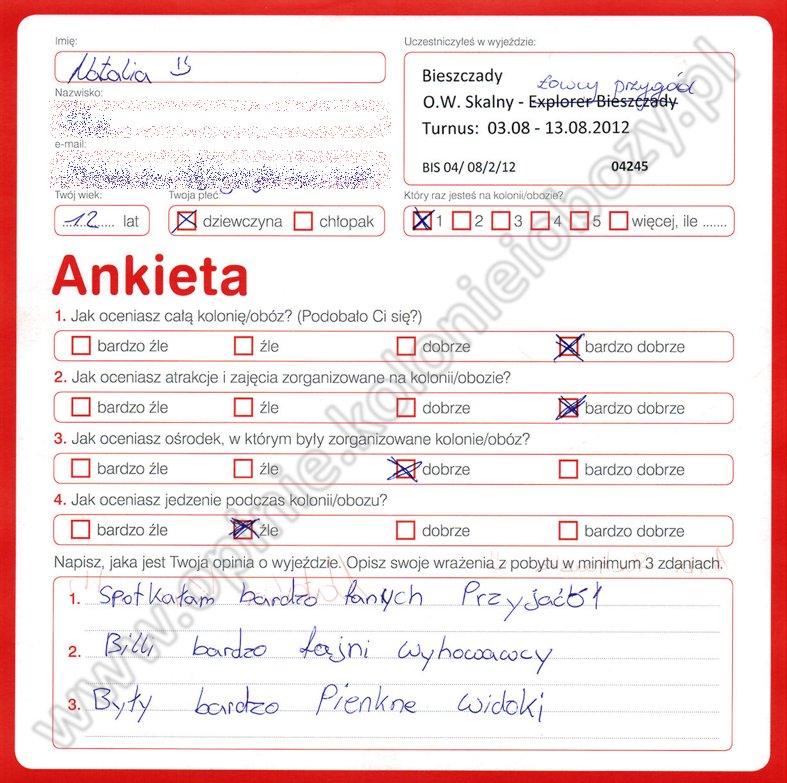 Imię:
Natalia
Uczestniczyłeś w wyjeździe:
Bieszczady
Łowcy przygód
O.W. Skalny - Explorer Bieszczady
Turnus: 03.08 - 13.08.2012
BIS 04/ 08/2/12 04245
Nazwisko:
e-mail:
Twój wiek:
12 lat
Twoja płeć:
dziewczyna chłopak
Który raz jesteś na kolonii/obozie?
1 2 3 4 5 więcej, ile .......
Ankieta
1. Jak oceniasz całą kolonię/obóz? (Podobało Ci się?)
bardzo źle źle dobrze bardzo dobrze
2. Jak oceniasz atrakcje i zajęcia zorganizowane na kolonii/obozie?
bardzo źle źle dobrze bardzo dobrze
3. Jak oceniasz ośrodek, w którym były zorganizowane kolonie/obóz?
bardzo źle źle dobrze bardzo dobrze
4. Jak oceniasz jedzenie podczas kolonii/obozu?
bardzo źle źle dobrze bardzo dobrze
Napisz, jaka jest Twoja opinia o wyjeździe. Opisz swoje wrażenia z pobytu w minimum 3 zdaniach.
1. Spotkałam bardzo fanych Przyjaciół
2. Billi bardzo fajni wyhowawcy
3. Były bardzo Pienkne widoki
www.opinie.kolonieiobozy.pl